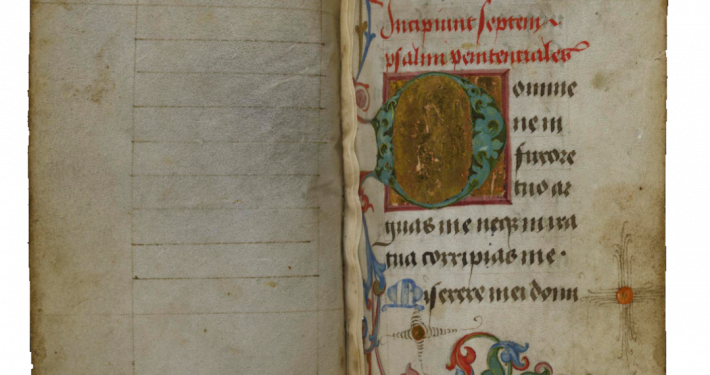 Incipiunt septem
psalmi penitentiales
Domine
ne in
furore
tuo ar
guas me neqz in ira
tua corripias me ·
Miserere mei domi